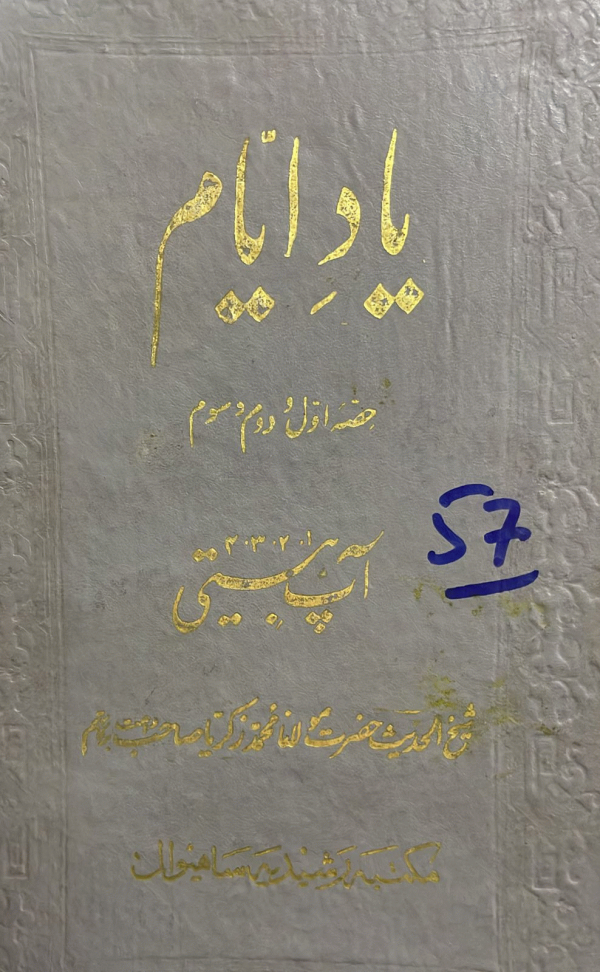 یادِ ایّام
حصّہ اوّل و دوم و سوم
آپ بیتی
۱۔۲۔۳۔۴
57
شیخ الحدیث حضرت مولانا محمد زکریا صاحب دامت برکاتہم
مکتبہ رشیدیہ ساہیوال